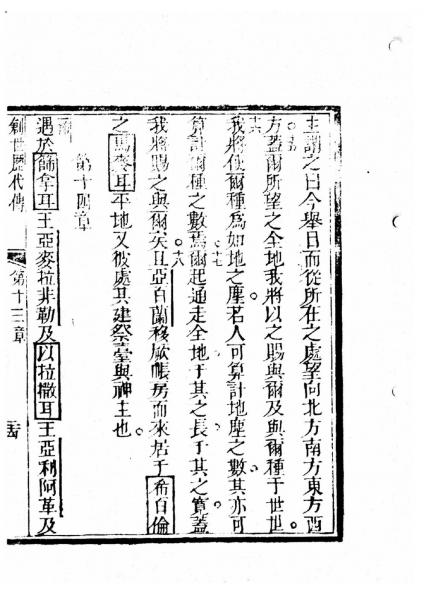 主謂之曰今舉目而從所在之處望向北方南方東方西
方蓋爾所望之全地我將以之賜與爾及與爾種于世世
我將使爾種為如地之塵若人可算計地塵之數其亦可
算計爾種之數焉爾起通走全地于其之長于其之寬蓋
我將賜之與爾矣且亞百蘭移厥帳房而來居于希百倫
之馬麥耳平地又彼處其建祭臺與神主也
第十四章
遇於篩拿耳王亞麥拉非勒及以拉撒耳王亞利阿革及
創世歷代傳 第十三章